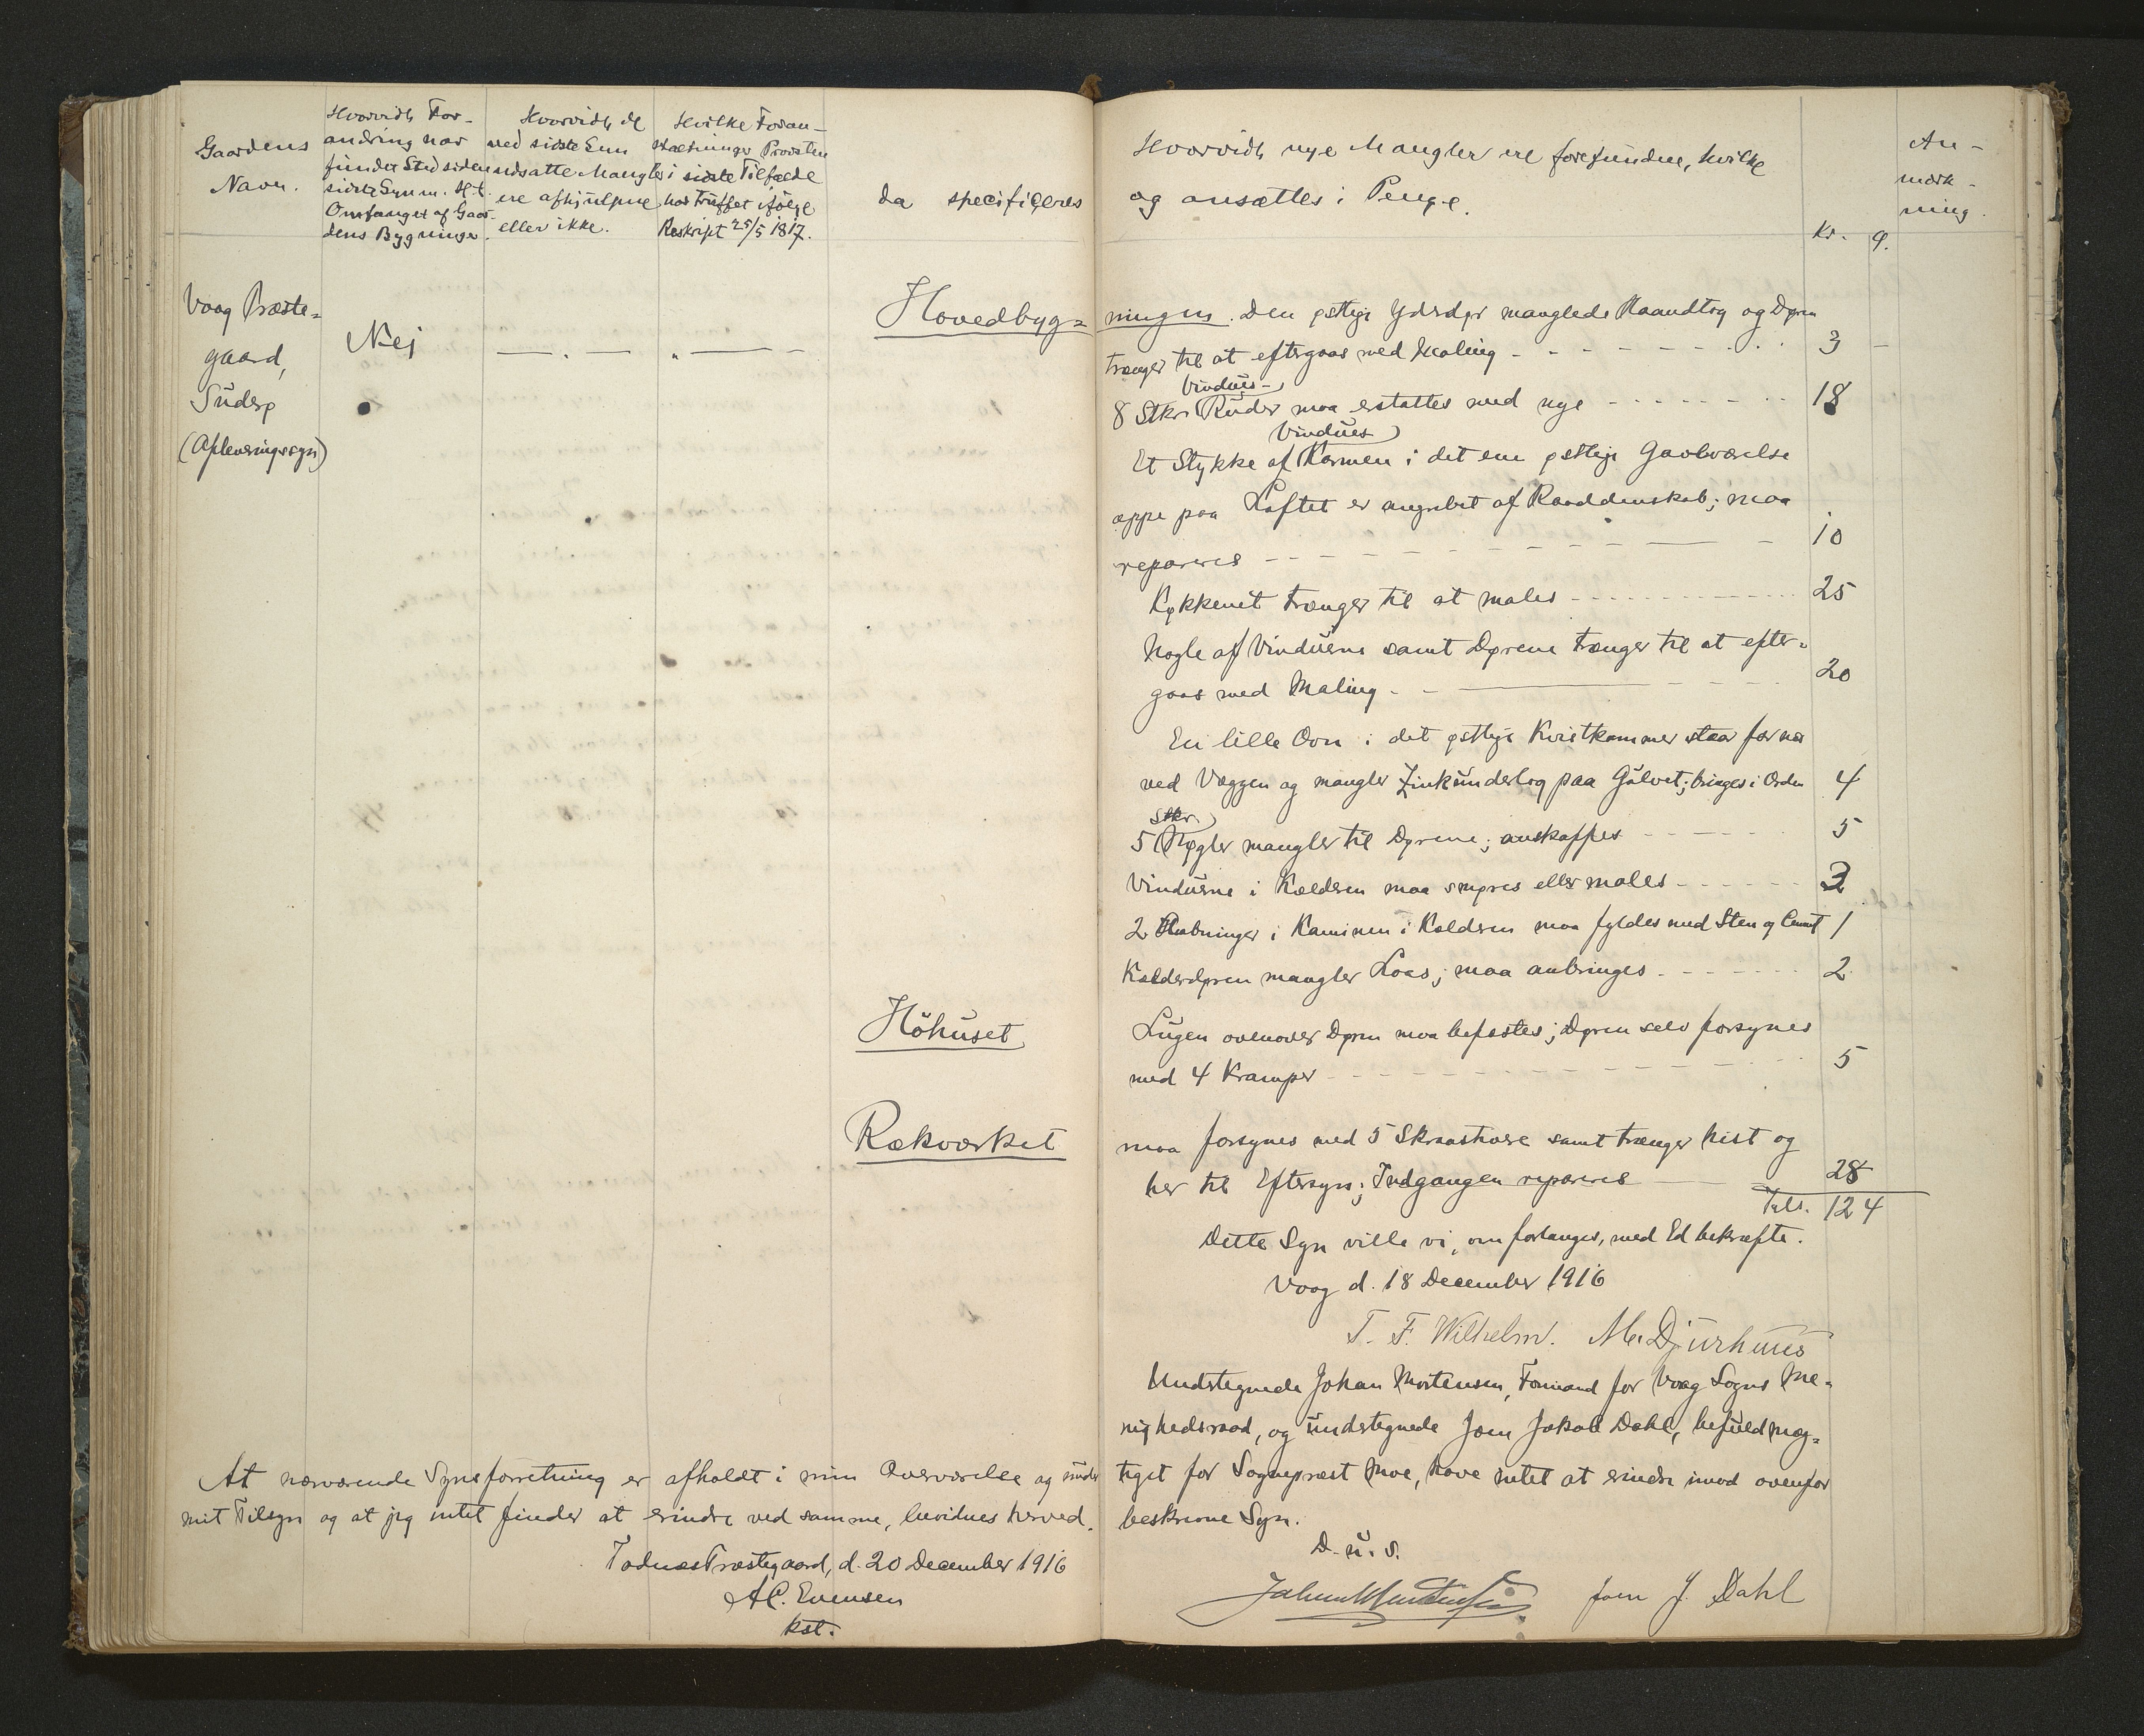 Gaardens
Navn.
Hvorvidt For-
andring har
fundet Sted siden
sidste Syn m. H. t.
Omfanget af Gaar-
dens Bygninger.
Hvorvidt de
ved sidste Syn
udsatte Mangler
ere afhjulpne
eller ikke.
Hvilke Foran-
staltninger Provsten
i sidste Tilfælde
har truffet ifølge
Reskript 25/5 1817.
Hvorvidt nye Mangler ere forefundne, hvilke
da specificeres og ansættes i Penge.
Kr. Ø.
An-
mærk-
ning.
Vaag Præste-
gaard,
Suderø
(Afleveringssyn)
Nej
Hovedbyg-
ningen. Den østlige Yderdør manglede Haandtag og Døren
trænger til at eftergaas med Maling 3 -
8 Stkr. Vindues-Ruder maa erstattes med nye 18
Et Stykke af Vindues Karmen i det ene østlige Gavlværelse
oppe paa Loftet er angrebet af Raaddenskab; maa
repareres 10
Køkkenet trænger til at males 25
Nogle af Vinduerne samt Dørene trænger til at efter-
gaas med Maling 20
En lille Ovn i det østlige Kvistkammer staar for nær
ved Væggen og mangler Zinkunderlag paa Gulvet; bringes i Orden 4
5 Stkr. Nøgler mangler til Dørene; anskaffes 5
Vinduerne i Kælderen maa smøres eller males 3
2 Aabninger i Kaminen i Kælderen maa fyldes med Sten og Cement 1
Kælderdøren mangler Laas; maa anbringes 2
Höhuset
Lugen ovenover Døren maa befæstes; Døren selv forsynes
med 4 Kramper 5
Rækværket
maa forsynes med 5 Skraastivere samt trænger hist og
her til Eftersyn; Indgangen repareres 28
Tils. 124
Dette Syn ville vi, om forlanges, med Ed bekræfte.
Vaag d. 18 December 1916
T. F. Wilhelm. M. Djurhuus
Undertegnede Johan Mortensen, Formand for Vaag Sogns Me-
nighedsraad, og undertegnede Joen Jakob Dahl, befuldmæg-
tiget for Sognepræst Moe, have intet at erindre imod ovenfor
beskrevne Syn.
D. u. s.
Johan Mortensen Joen J. Dahl
At nærværende Synsforretning er afholdt i min Overværelse og under
mit Tilsyn og at jeg intet finder at erindre ved samme, bevidnes herved.
Tadnæs Præstegaard, d. 20 December 1916
A C. Evensen
kst.